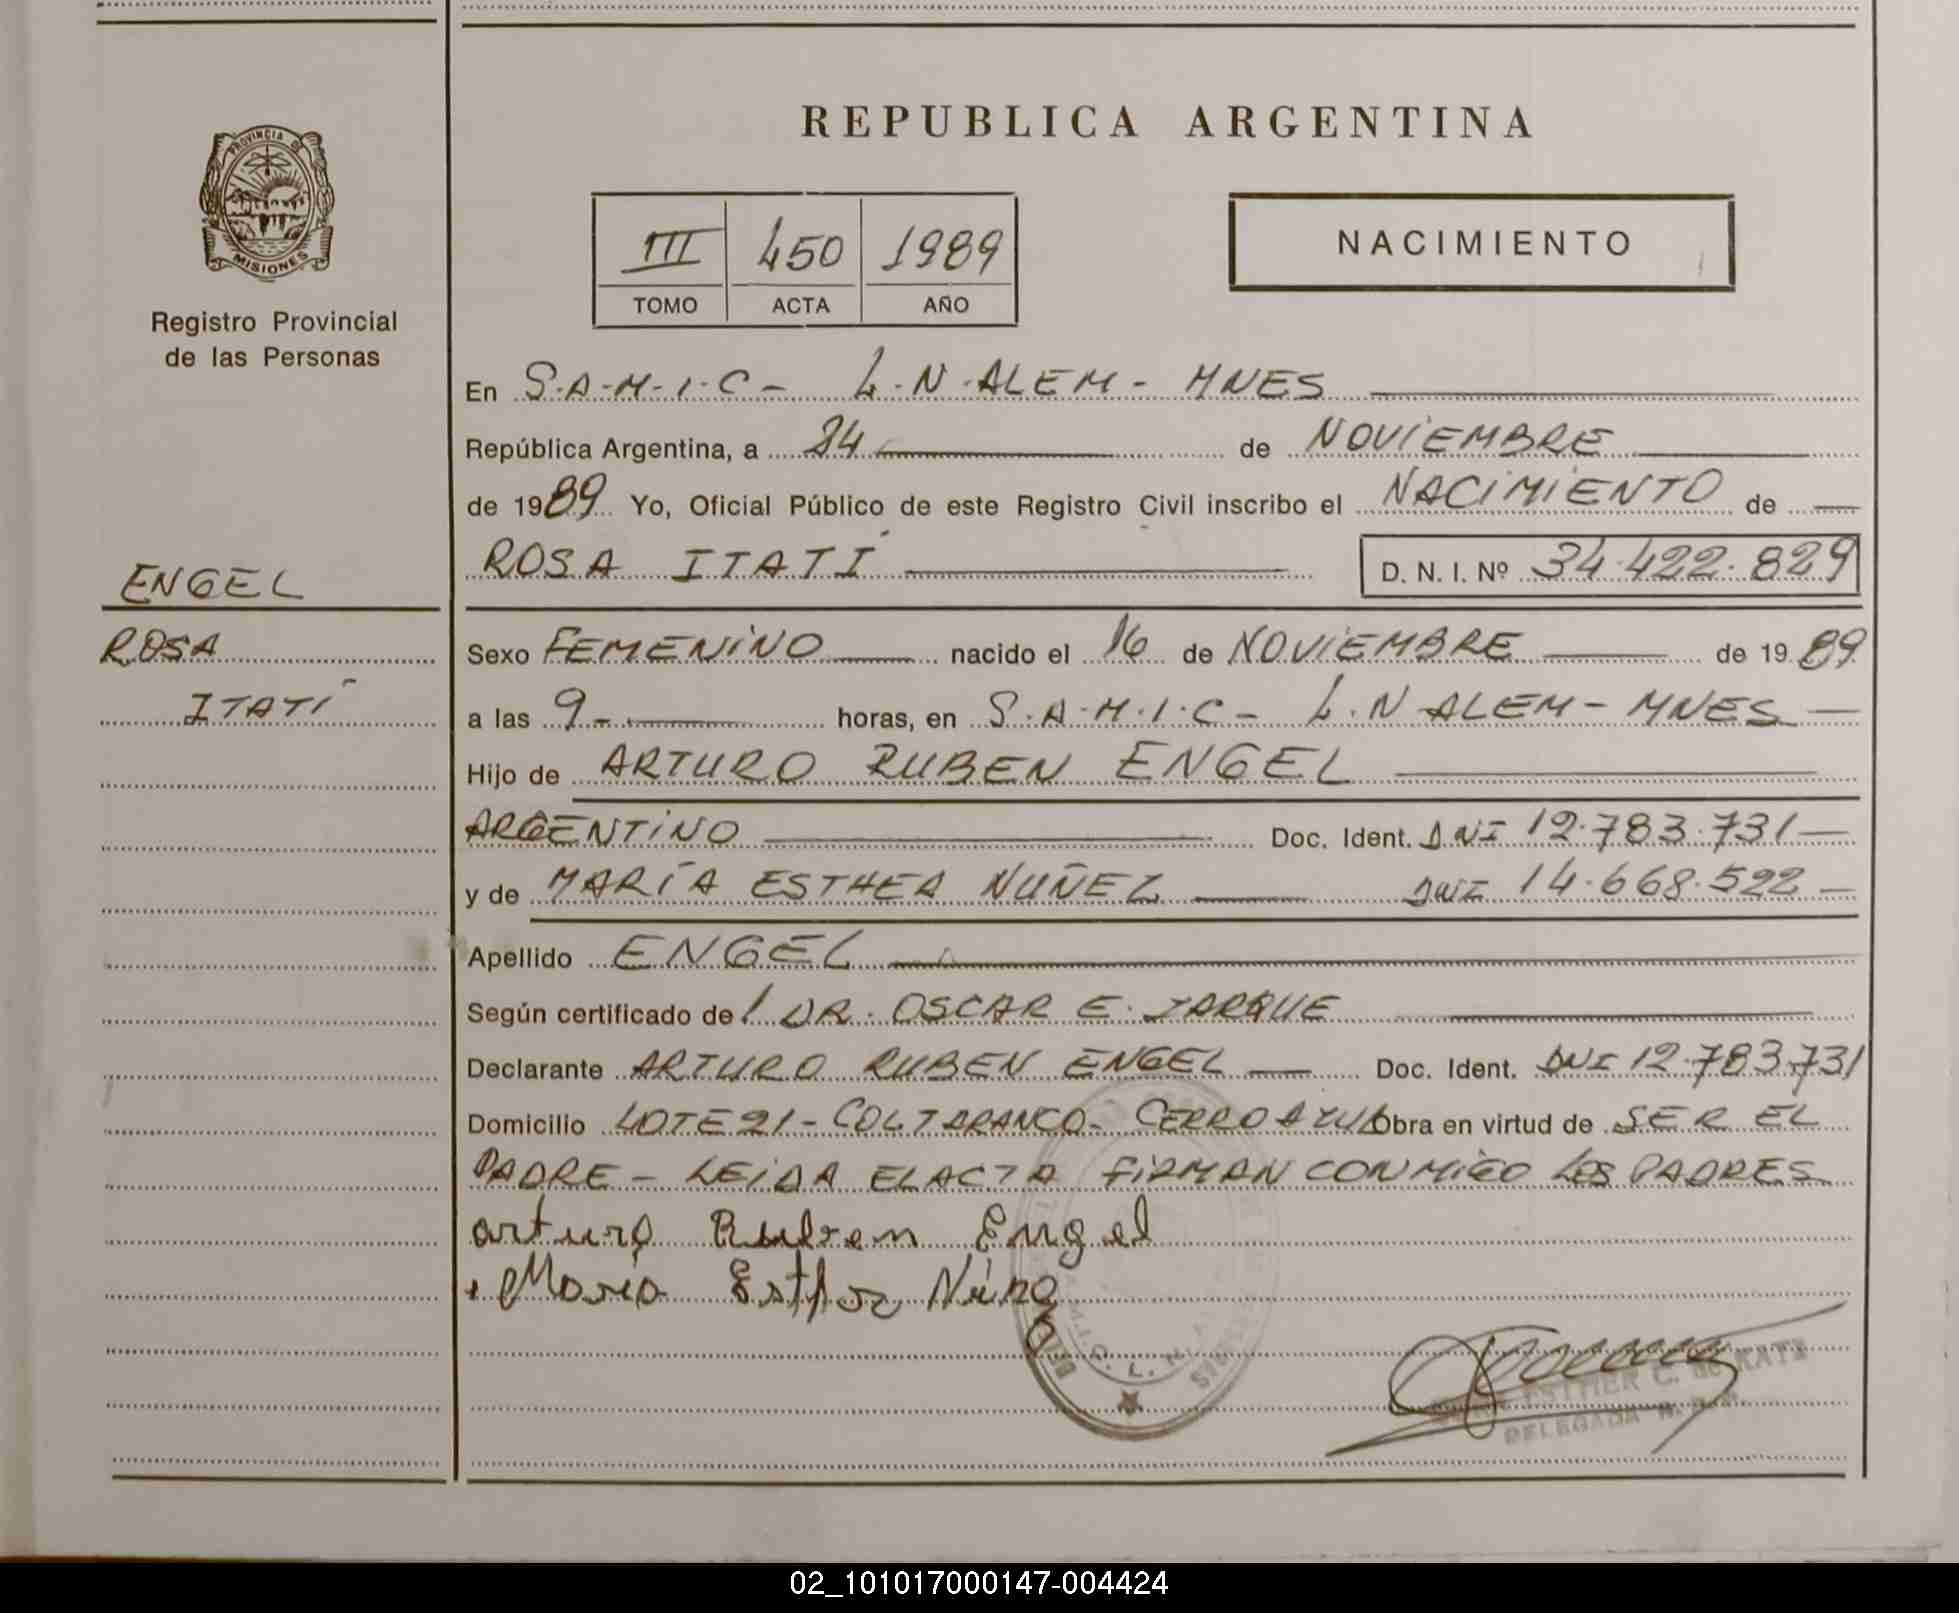 REPUBLICA ARGENTINA
PROVINCIA DE
MISIONES
Registro Provincial
de las Personas
III 450 1989
TOMO ACTA AÑO
NACIMIENTO
En S.A.M.I.C - L.N.ALEM - MNES
República Argentina, a 24 de NOVIEMBRE
de 1989 Yo, Oficial Público de este Registro Civil inscribo el NACIMIENTO de
ROSA ITATÍ D. N. I. Nº 34.422.829
ENGEL
ROSA
ITATÍ
Sexo FEMENINO nacido el 16 de NOVIEMBRE de 1989
a las 9- horas, en S.A.M.I.C - L.N ALEM - MNES
Hijo de ARTURO RUBEN ENGEL
ARGENTINO Doc. Ident. DNI 12.783.731
y de MARÍA ESTHER NUÑEZ DNI 14.668.522
Apellido ENGEL
Según certificado del DR. OSCAR E. JARQUE
Declarante ARTURO RUBEN ENGEL Doc. Ident. DNI 12.783.731
Domicilio LOTE 21 - COL TARANCO - CERRO AZUL Obra en virtud de SER EL
PADRE - LEIDA EL ACTA FIRMAN CONMIGO LOS PADRES
Arturo Ruben Engel
Maria Esther Núñez
ESTHER C. de KATZ
DELEGADA
02_101017000147-004424